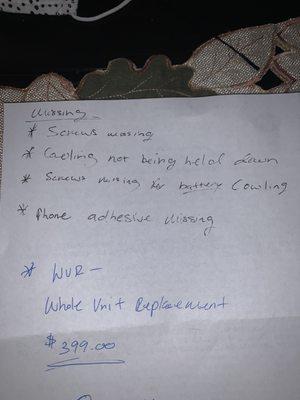 Missing
* Screws missing
* Cowling not being held down
* Screws missing for battery Cowling
* Phone adhesive Missing
* WUR -
Whole Unit Replacement
$399.00